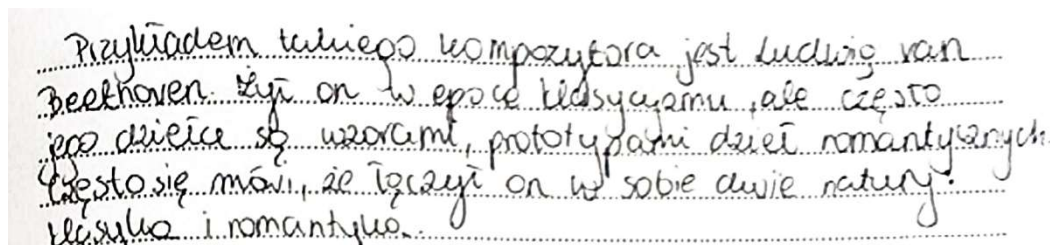 Przykładem takiego kompozytora jest Ludwig van
Beethoven. Żył on w epoce klasycyzmu, ale często
jego dzieła są wzorami, prototypami dzieł romantycznych.
Często się mówi, że łączył on w sobie dwie natury:
klasyka i romantyka.